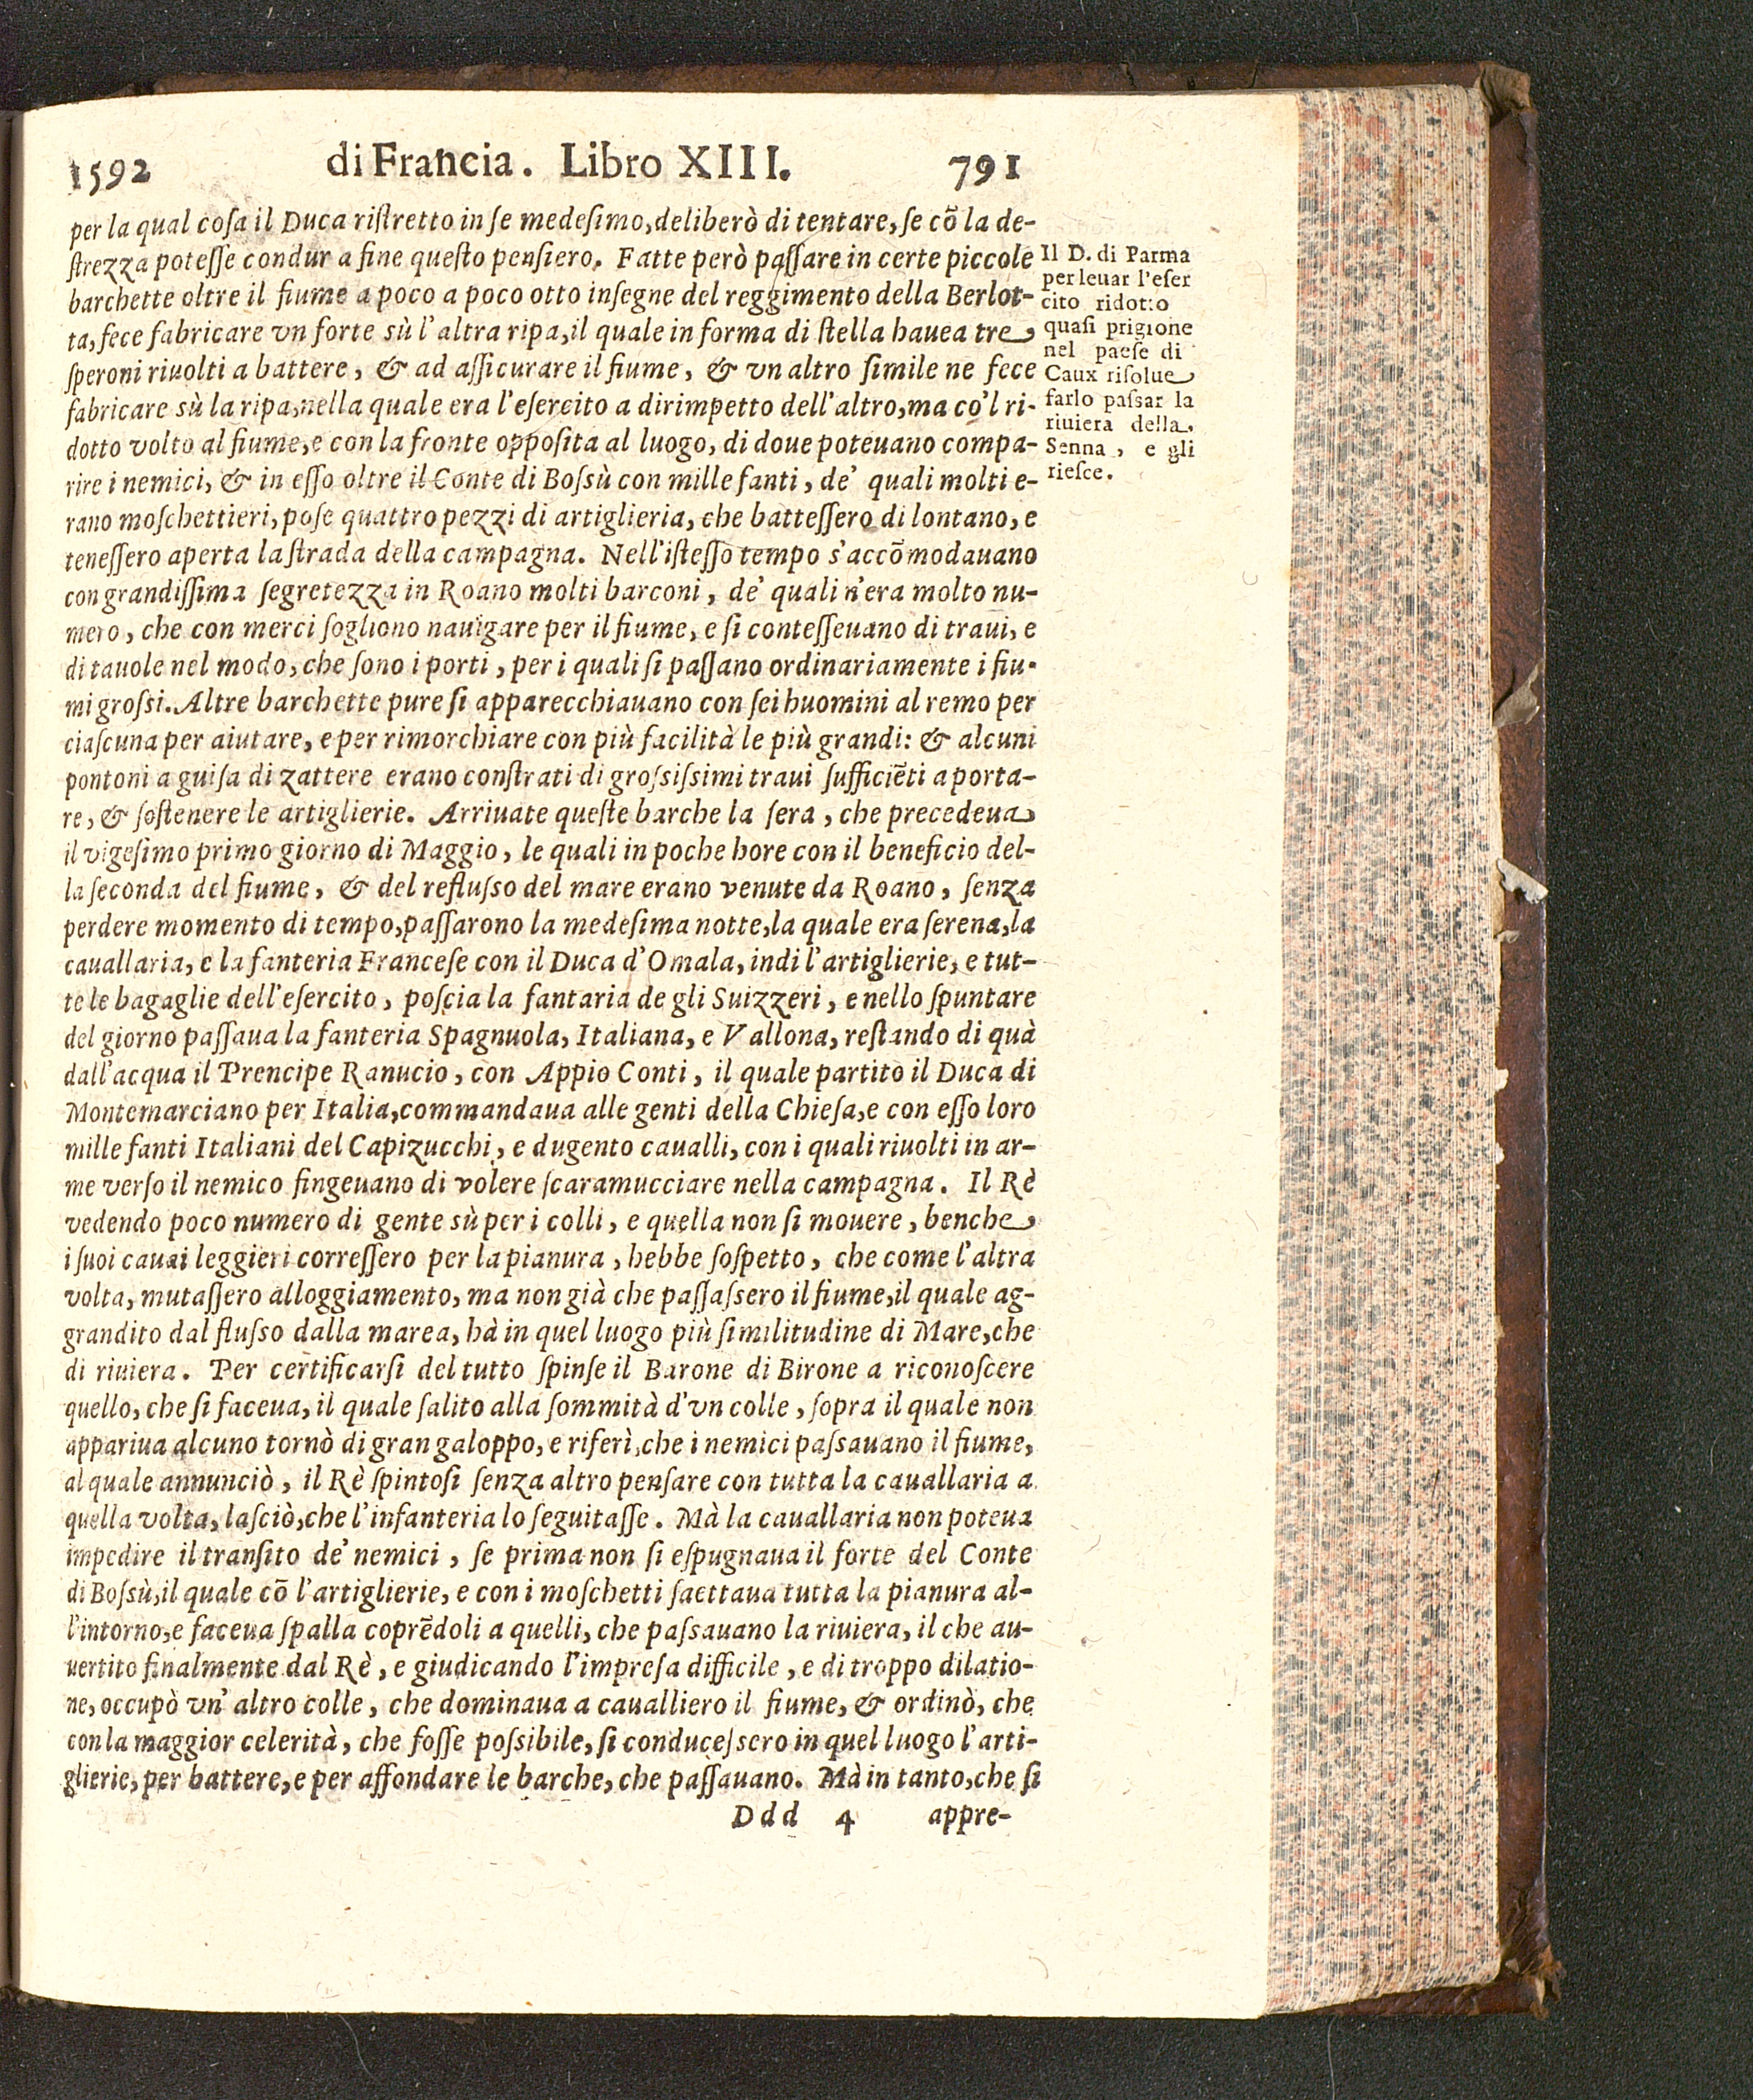 1592 di Francia. Libro XIII. 791
per la qual coſa il Duca riſtretto in ſe medeſimo, deliberò di tentare, ſe cõ la de-
ſtrezza poteſſe condur a fine queſto penſiero. Fatte però paſſare in certe piccole
barchette oltre il fiume a poco a poco otto inſegne del reggimento della Berlot-
ta, fece fabricare vn forte sù l'altra ripa, il quale in forma di ſtella hauea tre
ſperoni riuolti a battere, & ad aſſicurare il fiume, & vn altro ſimile ne fece
fabricare sù la ripa, nella quale era l'eſercito a dirimpetto dell'altro, ma co'l ri-
dotto volto al fiume, e con la fronte oppoſita al luogo, di doue poteuano compa-
rire i nemici, & in eſſo oltre il Conte di Boſsù con mille fanti, de' quali molti e-
rano moſchettieri, poſe quattro pezzi di artiglieria, che batteſſero di lontano, e
teneſſero aperta la ſtrada della campagna. Nell'iſteſſo tempo s'accõmodauano
con grandiſſima ſegretezza in Roano molti barconi, de' quali n'era molto nu-
mero, che con merci ſogliono nauigare per il fiume, e ſi conteſſeuano di traui, e
di tauole nel modo, che ſono i porti, per i quali ſi paſſano ordinariamente i fiu-
mi groſsi. Altre barchette pure ſi apparecchiauano con ſei huomini al remo per
ciaſcuna per aiutare, e per rimorchiare con più facilità le più grandi: & alcuni
pontoni a guiſa di zattere erano conſtrati di groſsiſsimi traui ſufficiẽti a porta-
re, & ſoſtenere le artiglierie. Arriuate queſte barche la ſera, che precedeua
il vigeſimo primo giorno di Maggio, le quali in poche hore con il beneficio del-
la ſeconda del fiume, & del refluſso del mare erano venute da Roano, ſenza
perdere momento di tempo, paſſarono la medeſima notte, la quale era ſerena, la
cauallaria, e la fanteria Franceſe con il Duca d'Omala, indi l'artiglierie, e tut-
te le bagaglie dell'eſercito, poſcia la fantaria de gli Suizzeri, e nello ſpuntare
del giorno paſſaua la fanteria Spagnuola, Italiana, e Vallona, reſtando di quà
dall'acqua il Prencipe Ranucio, con Appio Conti, il quale partito il Duca di
Montemarciano per Italia, commandaua alle genti della Chieſa, e con eſſo loro
mille fanti Italiani del Capizucchi, e dugento caualli, con i quali riuolti in ar-
me verſo il nemico fingeuano di volere ſcaramucciare nella campagna. Il Rè
vedendo poco numero di gente sù per i colli, e quella non ſi mouere, benche
i ſuoi cauai leggieri correſſero per la pianura, hebbe ſoſpetto, che come l'altra
volta, mutaſſero alloggiamento, ma non già che paſſaſsero il fiume, il quale ag-
grandito dal fluſso dalla marea, hà in quel luogo più ſimilitudine di Mare, che
di riuiera. Per certificarſi del tutto ſpinſe il Barone di Birone a riconoſcere
quello, che ſi faceua, il quale ſalito alla ſommità d'vn colle, ſopra il quale non
appariua alcuno tornò di gran galoppo, e riferì, che i nemici paſsauano il fiume,
al quale annunciò, il Rè ſpintoſi ſenza altro penſare con tutta la cauallaria a
quella volta, laſciò, che l'infanteria lo ſeguitaſſe. Mà la cauallaria non poteua
impedire il tranſito de' nemici, ſe prima non ſi eſpugnaua il forte del Conte
di Boſsù, il quale cõ l'artiglierie, e con i moſchetti ſaettaua tutta la pianura al-
l'intorno, e faceua ſpalla coprẽdoli a quelli, che paſsauano la riuiera, il che au-
uertito finalmente dal Rè, e giudicando l'impreſa difficile, e di troppo dilatio-
ne, occupò vn' altro colle, che dominaua a caualliero il fiume, & ordinò, che
con la maggior celerità, che foſſe poſsibile, ſi conduceſsero in quel luogo l'arti-
glierie, per battere, e per affondare le barche, che paſſauano. Mà in tanto, che ſi
Ddd 4 appre-
Il D. di Parma
per leuar l'eſer
cito ridotto
quaſi prigione
nel paeſe di
Caux riſolue
farlo paſsar la
riuiera della
Senna, e gli
rieſce.